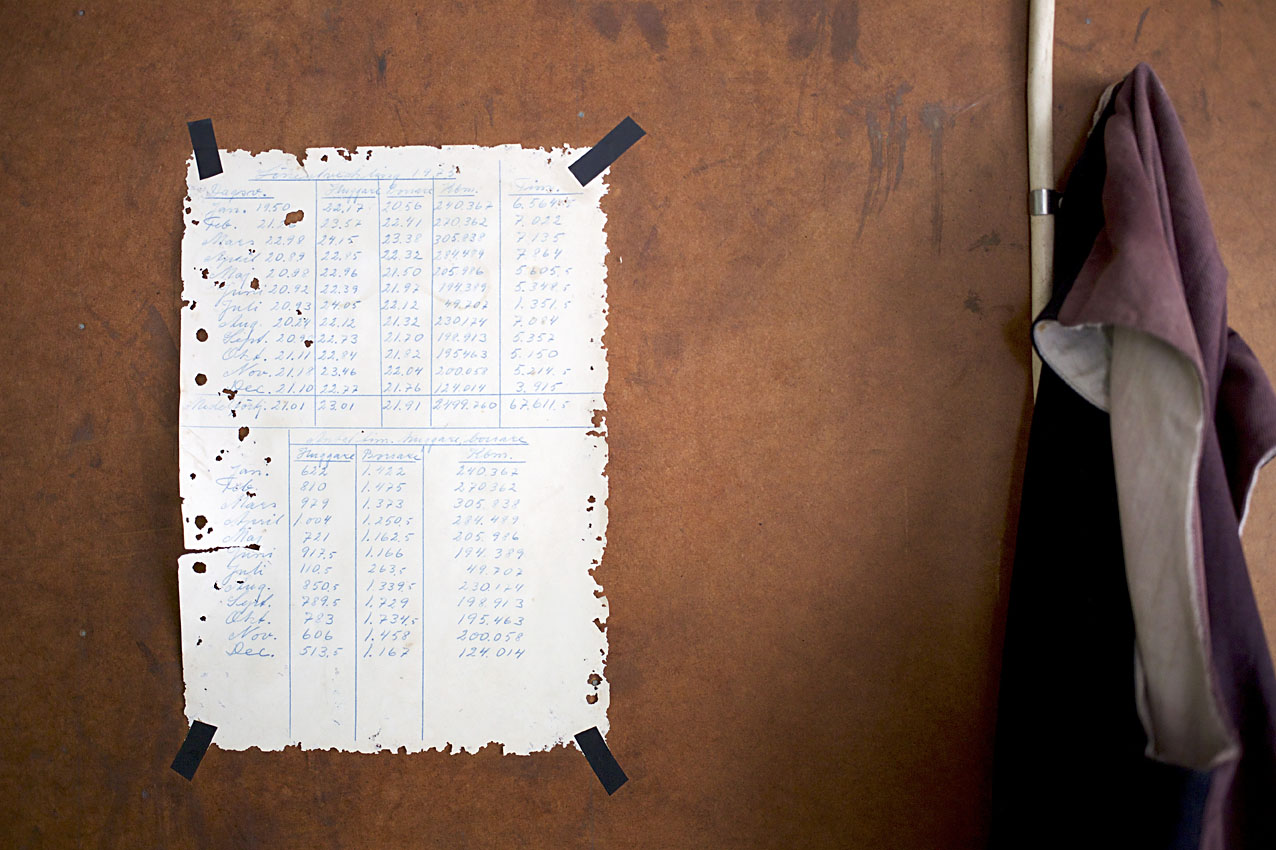 Löneutveckling 1973
Dagsv. Huggare Borrare Kbm. Tim.
Jan. 19.50 22.17 20.56 240.367 6.564.5
Feb. 21. 23.57 22.41 270.362 7.022
Mars 22.48 24.15 23.38 305.838 7.135
April 20.89 22.85 22.32 284.489 7.864
Maj 20.98 22.96 21.50 205.986 5.605,5
Juni 20.92 22.39 21.97 194.389 5.348,5
Juli 20.93 24.05 22.12 49.707 1.351,5
Aug. 20.24 22.12 21.32 230174 7.084
Sept. 22.73 21.70 198.913 5.357
Okt. 21.11 22.84 21.82 195463 5.150
Nov. 21.18 23.46 22.04 200.058 5.214.5
Dec. 21.10 22.77 21.76 124.014 3.915
21.01 23.01 21.91 2499.760 67.611,5
Antal tim. huggare, borrare
Huggare Borrare Kbm.
Jan. 622 1.422 240.367
Feb. 810 1.475 270362
Mars 979 1.373 305.838
April 1.004 1.250,5 284.489
Maj 721 1.162,5 205.986
Juni 917,5 1.166 194.389
Juli 110,5 263,5 49.707
Aug. 850,5 1339,5 230.174
Sept. 789,5 1.729 198.913
Okt. 783 1.734,5 195.463
Nov. 606 1.458 200.058
Dec. 513,5 1.167 124.014